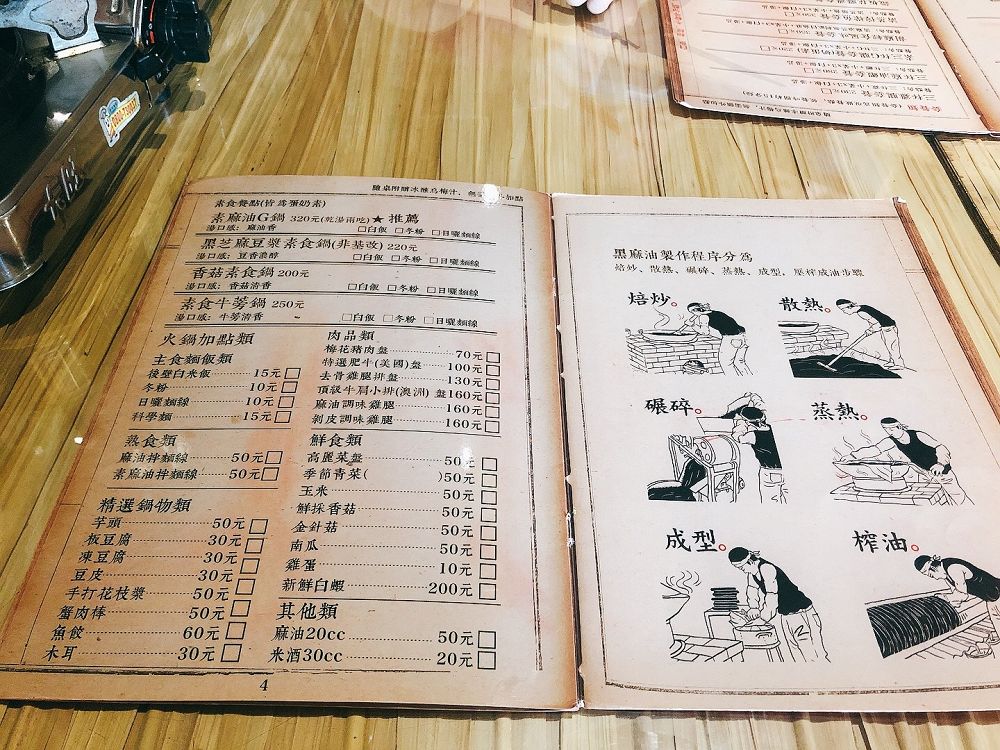 隨桌附贈冰釀烏梅汁,
加點
素食餐點(皆為蛋奶素)
素麻油G鍋 320元(乾湯兩吃)★ 推薦
湯口感: 麻油香 □白飯 □冬粉 □日曬麵線
黑芝麻豆漿素食鍋(非基改) 220元
湯口感: 豆香濃醇 □白飯 □冬粉 □日曬麵線
香菇素食鍋 200元
湯口感: 香菇清香 □白飯 □冬粉 □日曬麵線
素食牛蒡鍋 250元
湯口感: 牛蒡清香 □白飯 □冬粉 □日曬麵線
火鍋加點類
主食麵飯類
後壁白米飯 15元 □
冬粉 10元 □
日曬麵線 10元 □
科學麵 15元 □
熟食類
麻油拌麵線 50元 □
素麻油拌麵線 50元 □
精選鍋物類
芋頭 50元 □
板豆腐 30元 □
凍豆腐 30元 □
豆皮 30元 □
手打花枝漿 50元 □
蟹肉棒 50元 □
魚餃 60元 □
木耳 30元 □
肉品類
梅花豬肉盤 70元 □
特選肥牛(美國)盤 100元 □
去骨雞腿排盤 130元 □
頂級牛肩小排(澳洲) 盤160元 □
麻油調味雞腿 160元 □
剝皮調味雞腿 160元 □
鮮食類
高麗菜盤 50元 □
季節青菜( )50元 □
玉米 50元 □
鮮採香菇 50元 □
金針菇 50元 □
南瓜 50元 □
雞蛋 10元 □
新鮮白蝦 200元 □
其他類
麻油20cc 50元 □
米酒30cc 20元 □
4
黑麻油製作程序分為
焙炒、散熱、碾碎、蒸熱、成型、壓榨成油步驟
焙炒。
散熱。
碾碎。
蒸熱。
成型。
榨油。